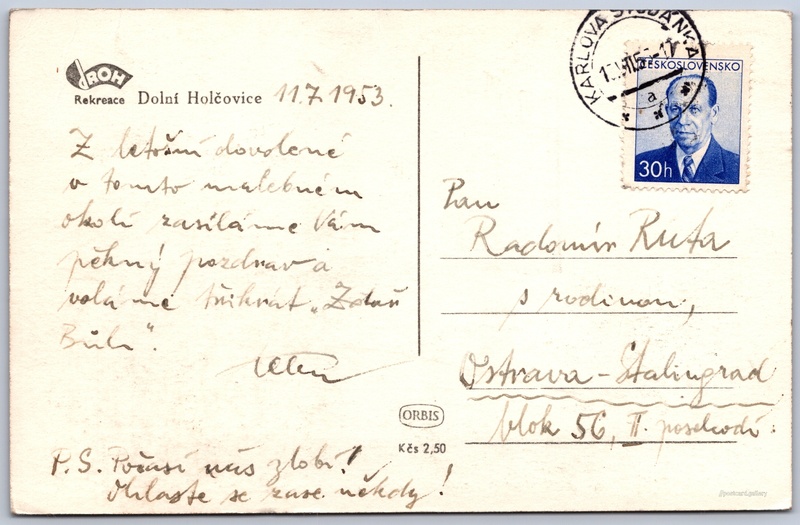 ROH
Rekreace Dolní Holčovice 11.7.1953.
Z letošní dovolené
v tomto malebném
okolí zasíláme Vám
pěkný pozdrav a
voláme třikrát „Zdař
Bůh".
P.S. Počasí nás zlobí!
Ohlaste se zase někdy!
ORBIS
Kčs 2,50
KARLOVA STUDÁNKA
a
ČESKOSLOVENSKO
30h
Pan
Radomír Ruta
s rodinou,
Ostrava-Stalingrad
blok 56, II. poschodí.